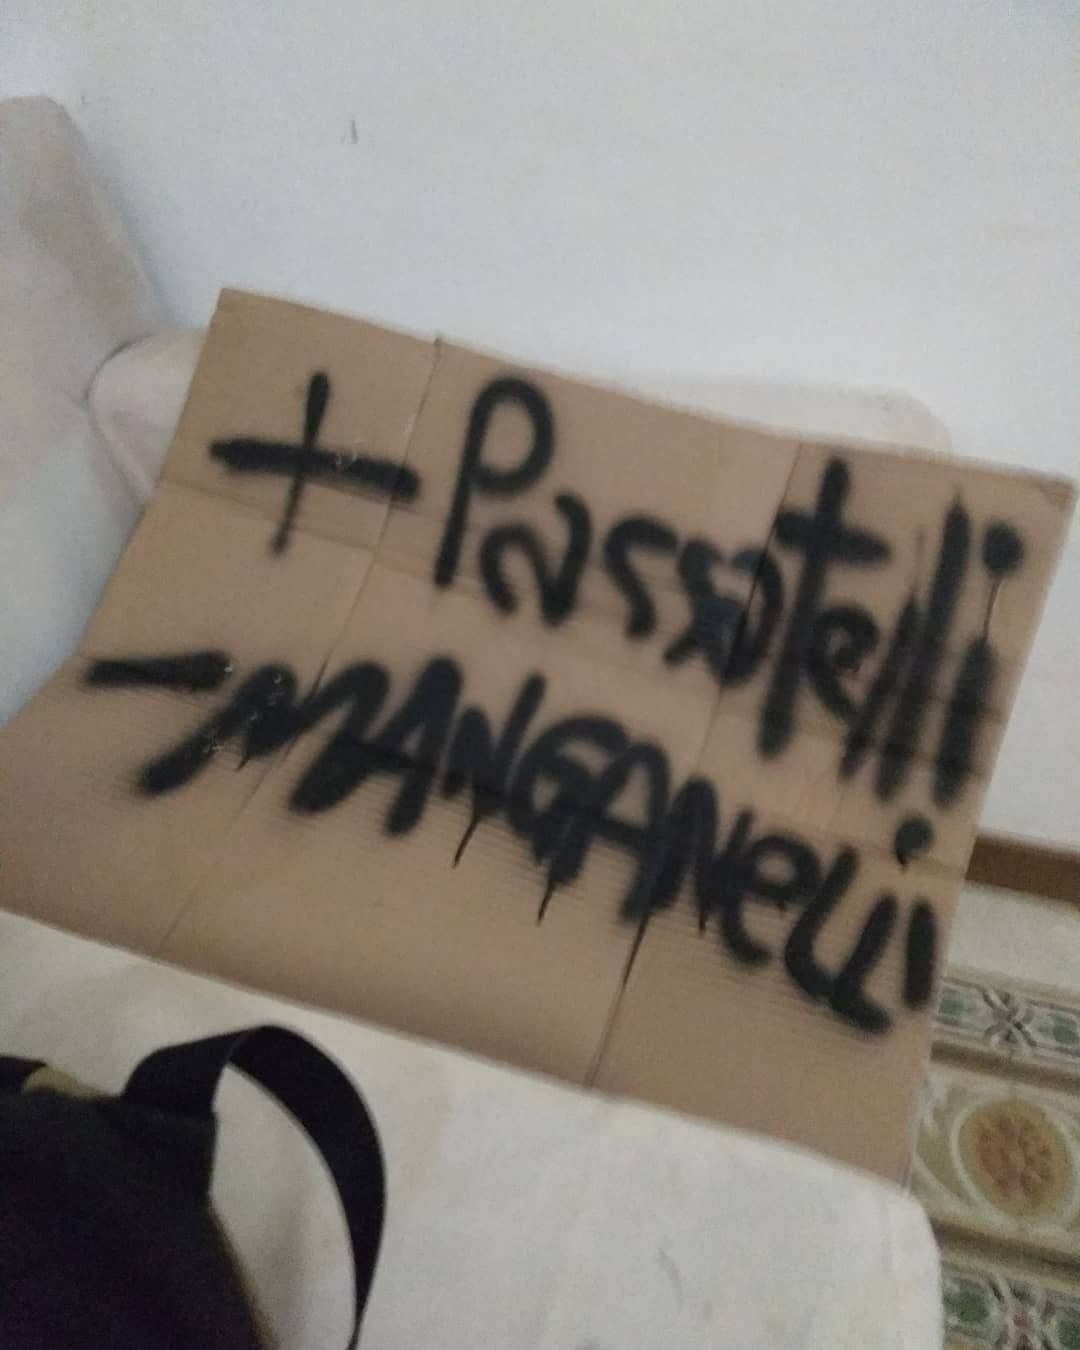 + Passatelli
- MANGANeLLi